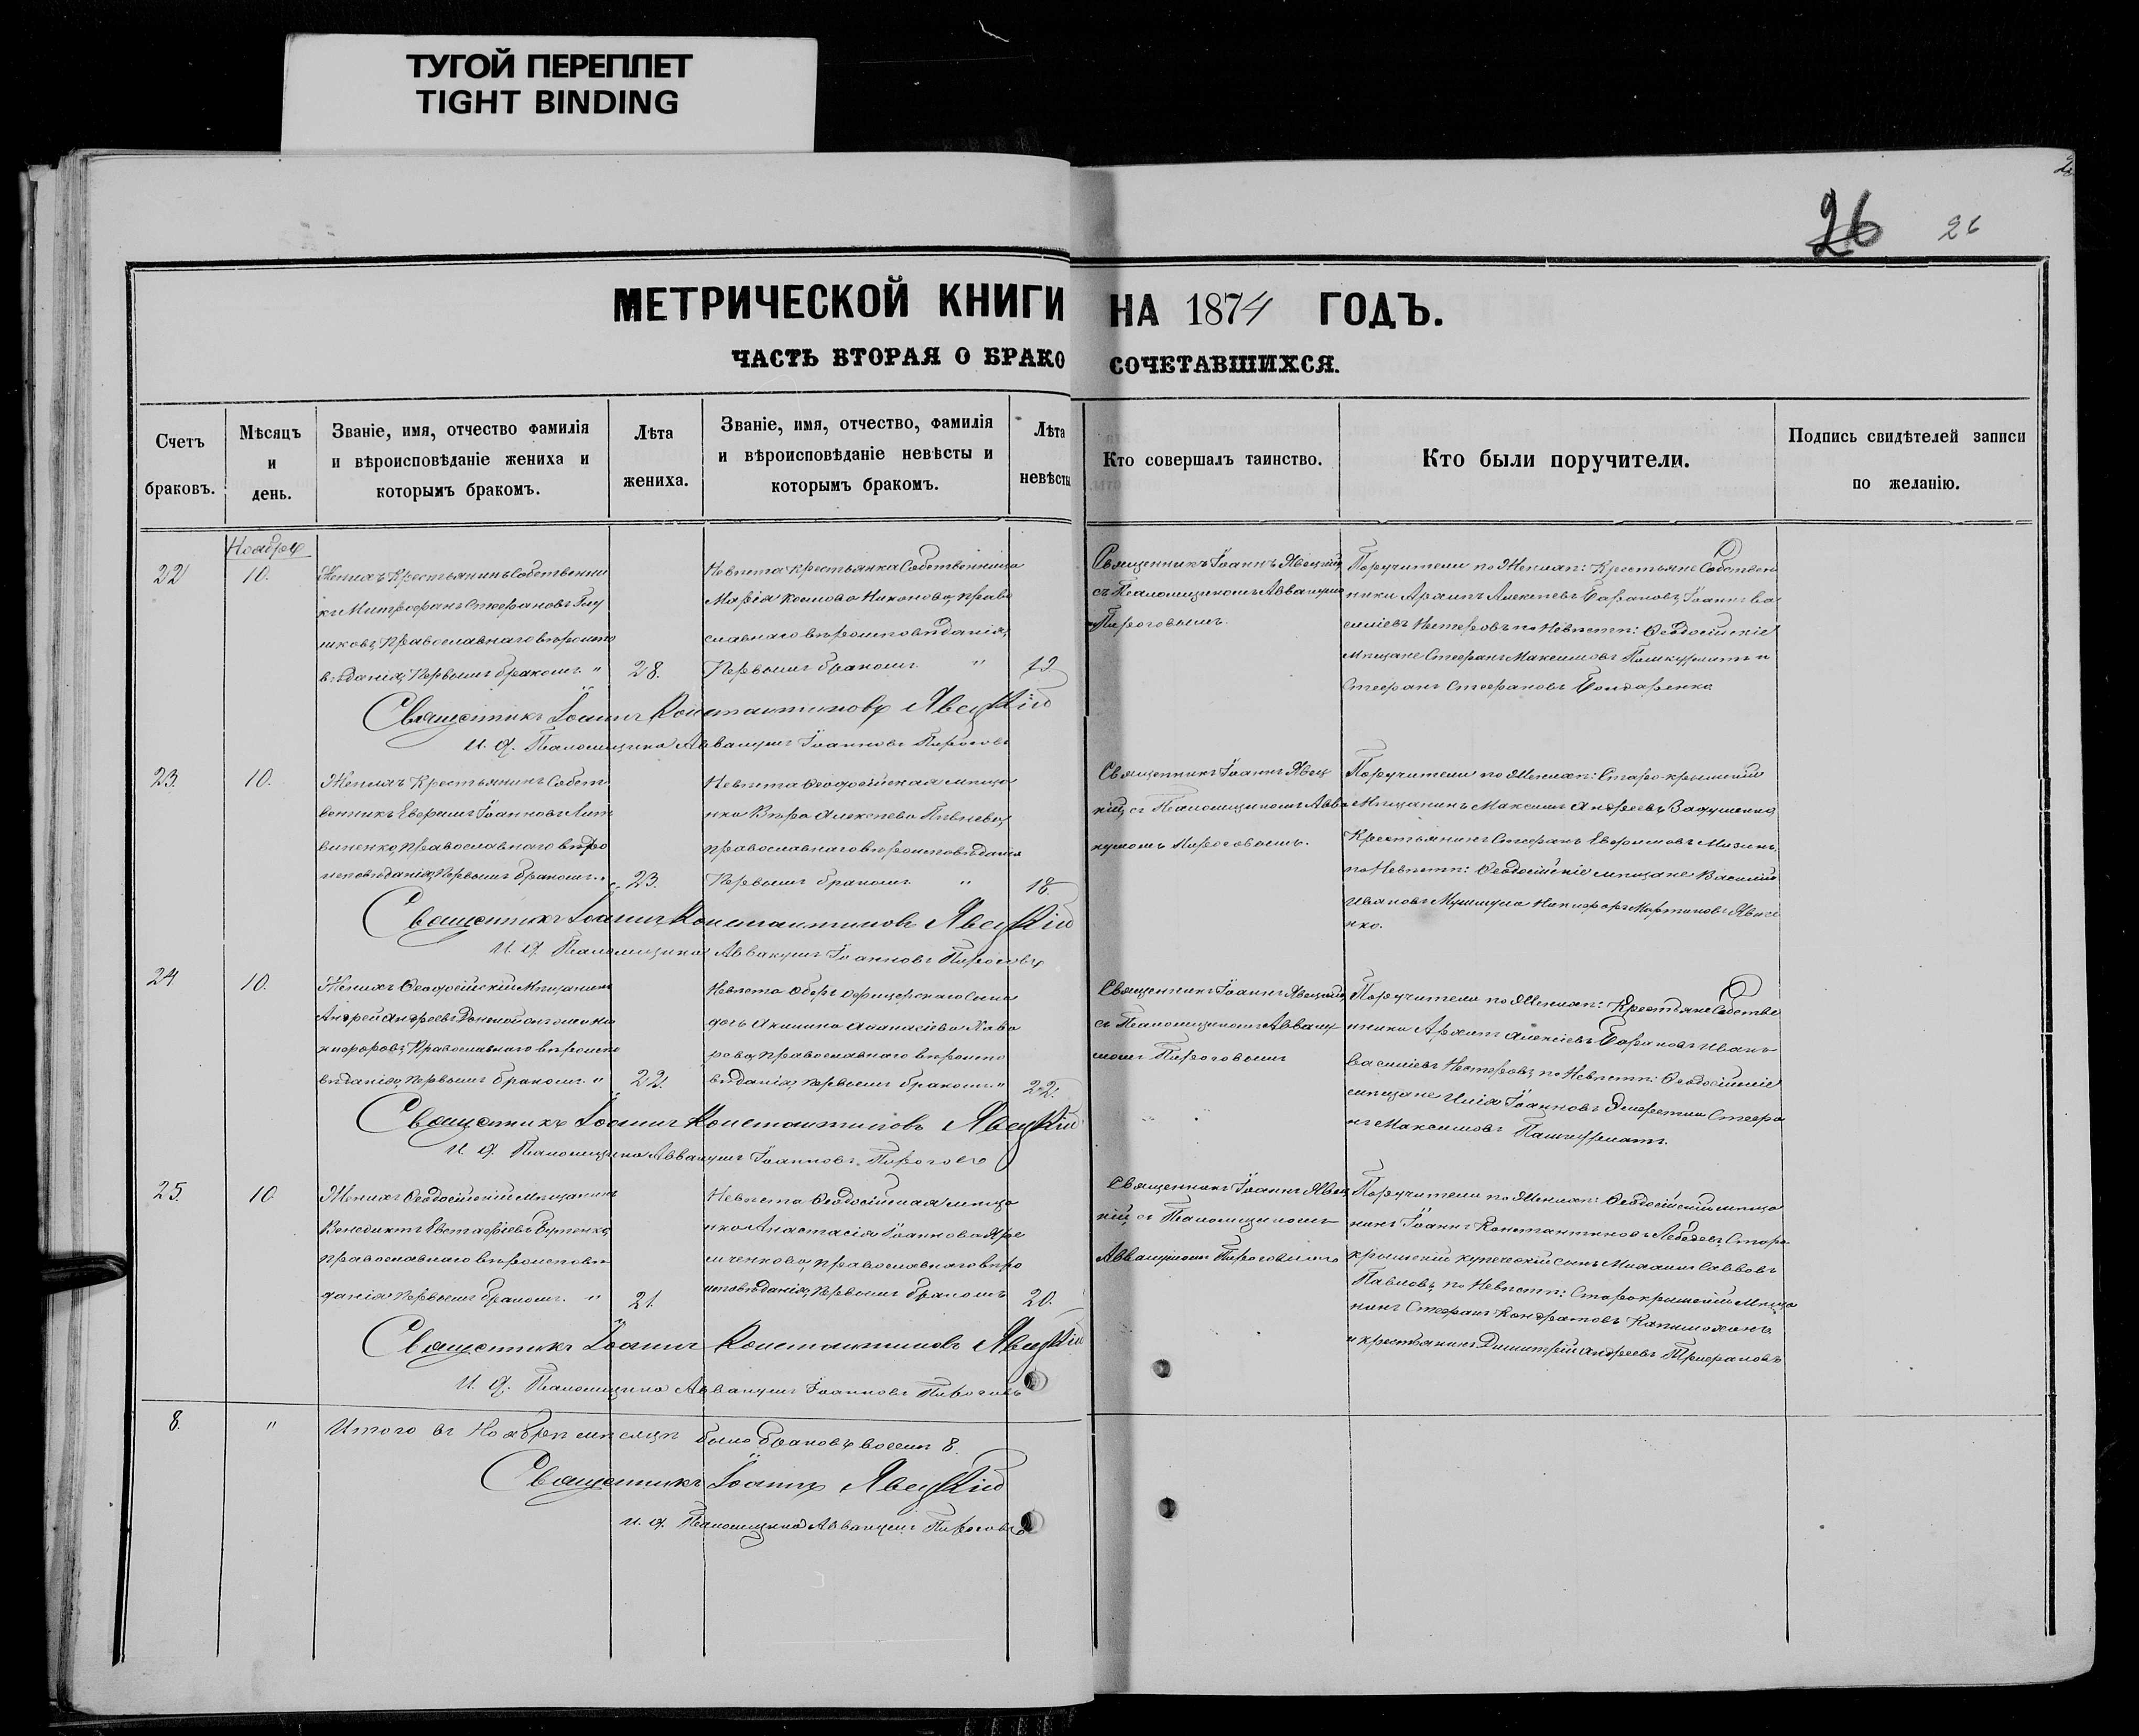 ТУГОЙ ПЕРЕПЛЕТ
TIGHT BINDING
26
26
МЕТРИЧЕСКОЙ КНИГИ НА 1874 ГОДЪ.
ЧАСТЬ ВТОРАЯ О БРАКО СОЧЕТАВШИХСЯ.
Счетъ браковъ.
Мѣсяцъ и день.
Званіе, имя, отчество фамилія
и вѣроисповѣданіе жениха и
которымъ бракомъ.
Лѣта жениха.
Званіе, имя, отчество, фамилія
и вѣроисповѣданіе невѣсты и
которымъ бракомъ.
Лѣта невѣсты
Кто совершалъ таинство.
Кто были поручители.
Подпись свидѣтелей записи
по желанію.
Ноябрь
22
10.
Женихъ Крестьянинъ Собственни
къ Митрофанъ Стефановъ
православнаго вѣроиспо
вѣданія, первымъ бракомъ "
28.
Невѣста крестьянка Собственница
Марія Никонова, право
славнаго вѣроисповѣданія,
первымъ бракомъ "
19
Священникъ Іоаннъ Явецкій
съ Псаломщикомъ Аввакумо
мъ Пироговымъ.
Поручители по Женихѣ: Крестьяне Собствен
ники Архипъ Алексѣевъ Барановъ, Іоаннъ Ва
силіевъ Нестеровъ по Невѣстѣ: Ѳеодосійскіе
мѣщане Стефанъ Максимовъ и
Стефанъ Стефановъ Бондаренко
Священникъ Іоаннъ Константиновъ Явецкій
И. д. Псаломщика Аввакумъ Іоанновъ Пироговъ
23.
10.
Женихъ Крестьянинъ Собст
венникъ Ефимъ Іоанновъ Лит
виненко, православнаго вѣро
исповѣданія, первымъ бракомъ "
23.
Невѣста Ѳеодосійская мѣща
нка Вѣра Алексѣева
православнаго вѣроисповѣданія
первымъ бракомъ "
18.
Священникъ Іоаннъ Явец
кій, съ Псаломщикомъ Авва
кумомъ Пироговымъ.
Поручители по Женихѣ: Старо-крымскій
Мѣщанинъ Максимъ Андреевъ
Крестьянинъ Стефанъ Ефимовъ Мазинъ,
по Невѣстѣ: Ѳеодосійскіе мѣщане Василій
Ивановъ Никифоръ Мартиновъ
нко.
Священникъ Іоаннъ Константиновъ Явецкій
И. д. Псаломщика Аввакумъ Іоанновъ Пироговъ
24
10.
Женихъ Ѳеодосійскій Мѣщанинъ
Андрей Андреевъ
православнаго вѣроиспо
вѣданія, первымъ бракомъ "
22.
Невѣста Оберъ Офицерскаго Сына
дочь Акилина Аѳанасіева
рова, православнаго вѣроиспо
вѣданія, первымъ бракомъ "
22.
Священникъ Іоаннъ Явецкій
съ Псаломщикомъ Авваку
момъ Пироговымъ
Поручители по Женихѣ: Крестьяне Собстве
нники Архипъ Алексіевъ Барановъ Иванъ
Василіевъ Нестеровъ, по Невѣстѣ: Ѳеодосійскіе
мѣщане Илія Іоанновъ Стефа
нъ Максимовъ
Священникъ Іоаннъ Константиновъ Явецкій
И. д. Псаломщика Аввакумъ Іоанновъ Пироговъ
25.
10.
Женихъ Ѳеодосійскій Мѣщанинъ
Венедиктъ Евстафіевъ Бутенко,
православнаго вѣроисповѣ
данія первымъ бракомъ. "
21.
Невѣста Ѳеодосійская мѣща
нка Анастасія Іоаннова
православнаго вѣро
исповѣданія, первымъ бракомъ
20.
Священникъ Іоаннъ Явец
кій, съ Псаломщикомъ
Аввакумомъ Пироговымъ
Поручители по Женихѣ: Ѳеодосійскій мѣща
нинъ Іоаннъ Константиновъ Лебедевъ, Старо
крымскій купеческій сынъ Михаилъ Саввовъ
Павловъ, по Невѣстѣ: Старокрымскій Мѣща
нинъ Стефанъ Кондратовъ
и крестьянинъ Димитрій Андреевъ
Священникъ Іоаннъ Константиновъ Явецкій
И. д. Псаломщика Аввакумъ Іоанновъ Пироговъ
8.
"
Итого въ Ноябрѣ мѣсяцѣ было браковъ восемь 8.
Священникъ Іоаннъ Явецкій
И. д. Псаломщика Аввакумъ Пироговъ